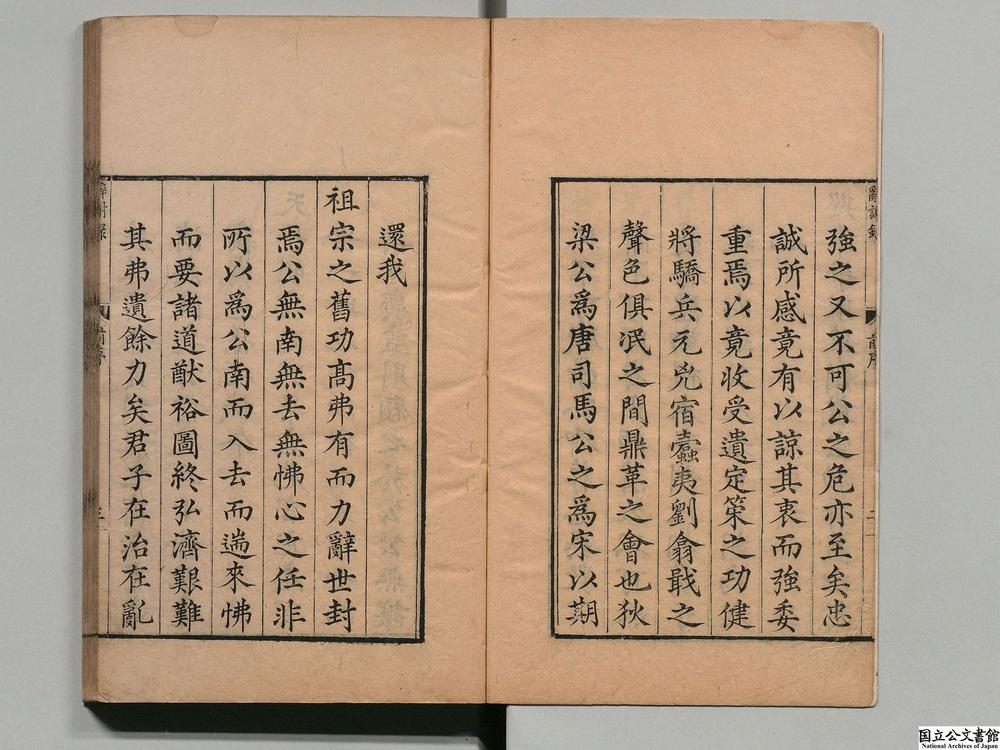 強之又不可公之危亦至矣忠
誠所感竟有以諒其衷而強委
重焉以竟收受遺定策之功健
將驕兵元兇宿蠹夷劉翕戢之
聲色俱泯之間鼎革之會也狄
梁公爲唐司馬公之爲宋以期
還我
祖宗之舊功高弗有而力辭世封
焉公無南無去無怫心之任非
所以爲公南而入去而遄來怫
而要諸道猷裕圖終弘濟艱難
其弗遺餘力矣君子在治在亂
辭封錄
前序
二
辭封錄
前序
三
国立公文書館
National Archives of Japan